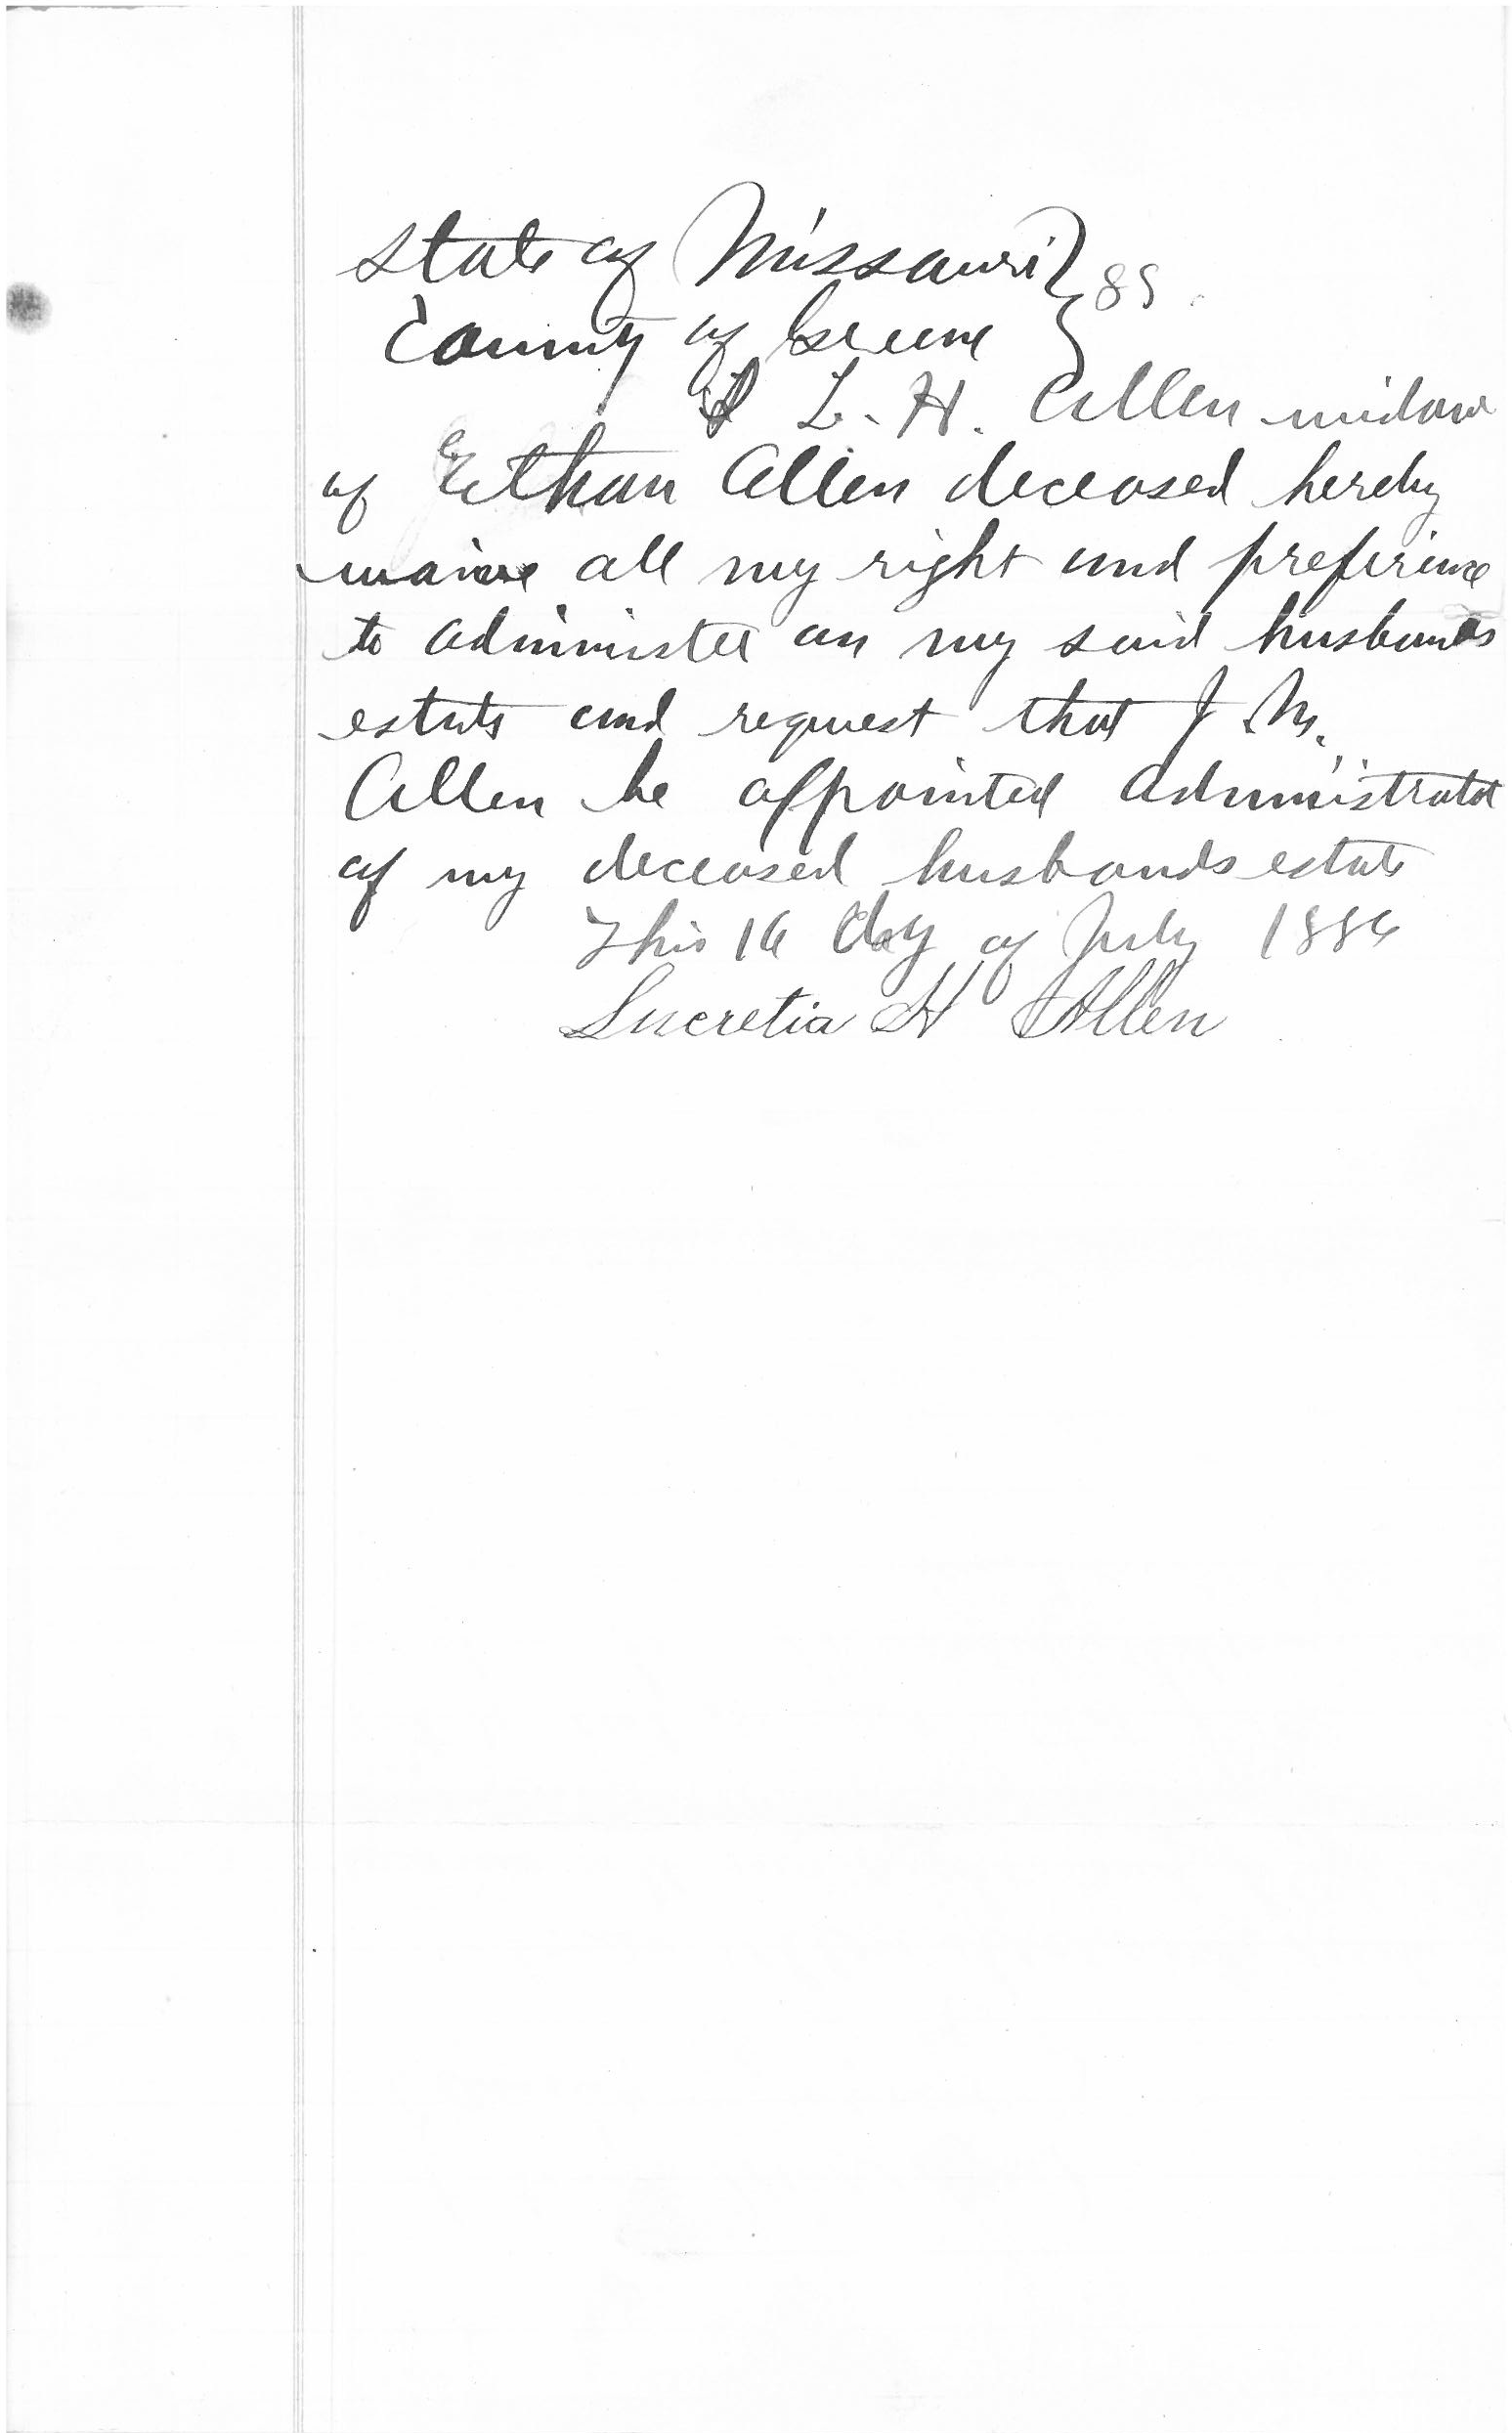 State of Missouri } SS.
County of Greene }
I L. H. Allen widow
of Ethan Allen deceased hereby
waive all my right and preference
to administer on my said husbands
estate and request that J. M.
Allen be appointed administrator
of my deceased husbands estate
This 16 day of July 1886
Lucretia H Allen